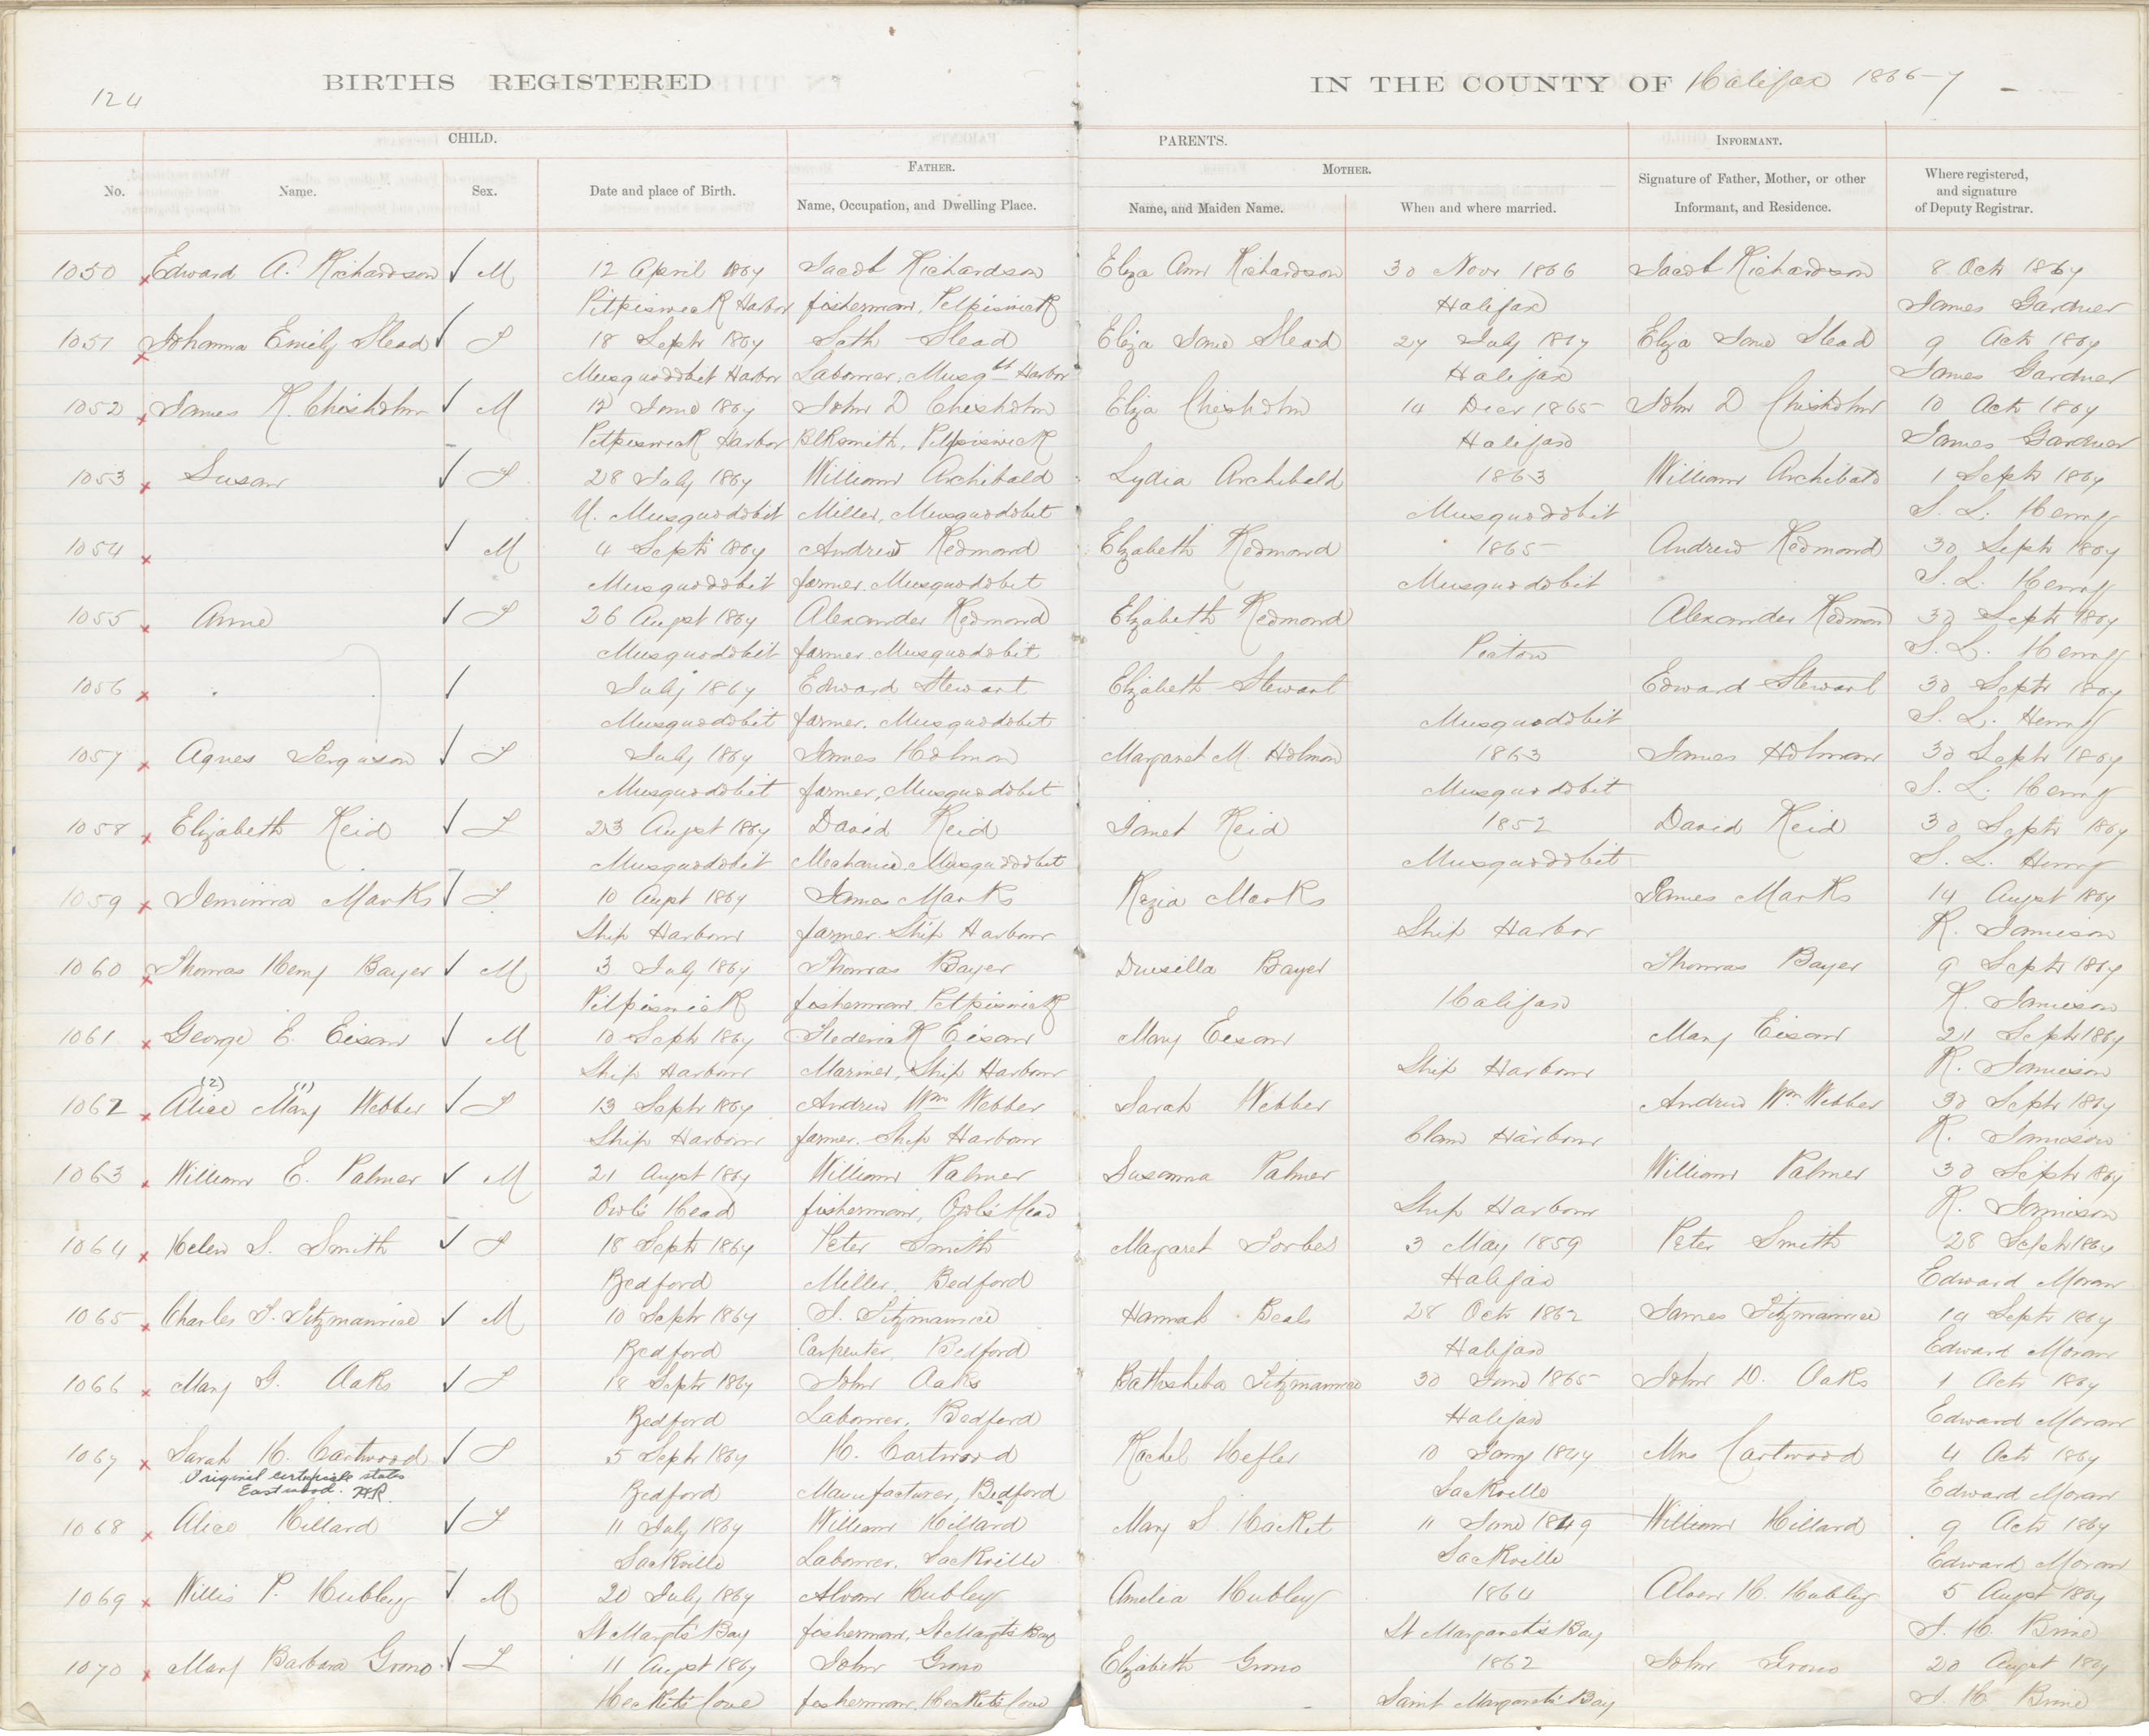 124
BIRTHS REGISTERED
IN THE COUNTY OF Halifax 1866-7
CHILD.
PARENTS.
INFORMANT.
No.
Name.
Sex.
Date and place of Birth.
FATHER.
Name, Occupation, and Dwelling Place.
MOTHER.
Name, and Maiden Name.
When and where married.
Signature of Father, Mother, or other
Informant, and Residence.
Where registered,
and signature
of Deputy Registrar.
1050 Edward A. Richardson M 12 April 1867 Jacob Richardson Eliza Ann Richardson 30 Novr 1866 Jacob Richardson 8 Octr 1867
Pitpiswick Harbor fisherman, Petpiswick Halifax James Gardner
1051 Johanna Emily Slead F 18 Septr 1867 Seth Slead Eliza Jane Slead 27 July 1867 Eliza Jane Slead 9 Octr 1867
Musquodobit Harbor Laborer, Musqbt Harbor Halifax James Gardner
1052 James R. Chisholm M 12 June 1867 John D Chisholm Eliza Chisholm 14 Decr 1865 John D Chisholm 10 Octr 1867
Petpeswick Harbor Blksmith, Petpiswick Halifax James Gardner
1053 Susan F 28 July 1867 William Archibald Lydia Archibald 1863 William Archibald 1 Septr 1867
U. Musquodobit Miller, Musquodobit Musquodobit S. L. Henry
1054 M 4 Septr 1867 Andrew Redmond Elizabeth Redmond 1865 Andrew Redmond 30 Septr 1867
Musquodobit farmer. Musquodobit Musquodobit S. L. Henry
1055 Anne F 26 Augst 1867 Alexander Redmond Elizabeth Redmond Alexander Redmond 30 Septr 1867
Musquodobit farmer. Musquodobit Pictou S. L. Henry
1056 July 1867 Edward Stewart Elizabeth Stewart Edward Stewart 30 Septr 1867
Musquodobit farmer. Musquodobit Musquodobit S. L. Henry
1057 Agnes Ferguson F July 1867 James Holman Margaret M. Holman 1863 James Holman 30 Septr 1867
Musquodobit farmer, Musquodobit Musquodobit S. L. Henry
1058 Elizabeth Reid F 23 Augst 1867 David Reid Janet Reid 1852 David Reid 30 Septr 1867
Musquodobit Mechanic. Musquodobit Musquodobit S. L. Henry
1059 Jemima Marks F 10 Augst 1867 James Marks Kezia Marks James Marks 14 Augst 1867
Ship Harbour farmer. Ship Harbour Ship Harbor R. Jamieson
1060 Thomas Henry Bayer M 3 July 1867 Thomas Bayer Drusilla Bayer Thomas Bayer 9 Septr 1867
Pitpiswick fisherman. Petpiswick Halifax R. Jamieson
1061 George E. Eisan M 10 Septr 1867 Frederick Eisan Mary Eisan Mary Eisan 21 Septr 1867
Ship Harbour Mariner, Ship Harbour Ship Harbour R. Jamieson
(2) (1)
1062 Alice Mary Webber F 13 Septr 1867 Andrew Wm Webber Sarah Webber Andrew Wm Webber 30 Septr 1867
Ship Harbour farmer. Ship Harbour Clam Harbour R. Jamieson
1063 William E. Palmer M 21 Augst 1867 William Palmer Susanna Palmer William Palmer 30 Septr 1867
Owls Head fisherman, Owls Head Ship Harbour R. Jamieson
1064 Helen S. Smith F 18 Septr 1867 Peter Smith Margaret Forbes 3 May 1859 Peter Smith 28 Septr 1867
Bedford Miller, Bedford Halifax Edward Moran
1065 Charles F. Fitzmaurice M 10 Septr 1867 J. Fitzmaurice Hannah Beals 28 Octr 1862 James Fitzmaurice 19 Septr 1867
Bedford Carpenter, Bedford Halifax Edward Moran
1066 Mary G. Oaks F 18 Septr 1867 John Oaks Bathsheba Fitzmaurice 30 June 1865 John D. Oaks 1 Octr 1867
Bedford Laborer, Bedford Halifax Edward Moran
1067 Sarah H. Cartwood F 5 Septr 1867 H. Cartwood Rachel Hefler 10 Jany 1847 Mrs Cartwood 4 Octr 1867
Original certificate states
Eastwood. Bedford Manufacturer, Bedford Sackville Edward Moran
1068 Alice Hillard F 11 July 1867 William Hillard Mary S. Hacket 11 June 1849 William Hillard 9 Octr 1867
Sackville Laborer. Sackville Sackville Edward Moran
1069 Willis P. Hubley M 20 July 1867 Alvan Hubley Amelia Hubley 1864 Alven H. Hubley 5 Augst 1867
St Margts Bay fisherman, St Margts Bay St Margaret's Bay J. H. Brine
1070 Mary Barbara Grono F 11 Augst 1867 John Grono Elizabeth Grono 1862 John Grono 20 Augst 1867
Heckets Cove fisherman. Heckets Cove Saint Margarets Bay J. H. Brine